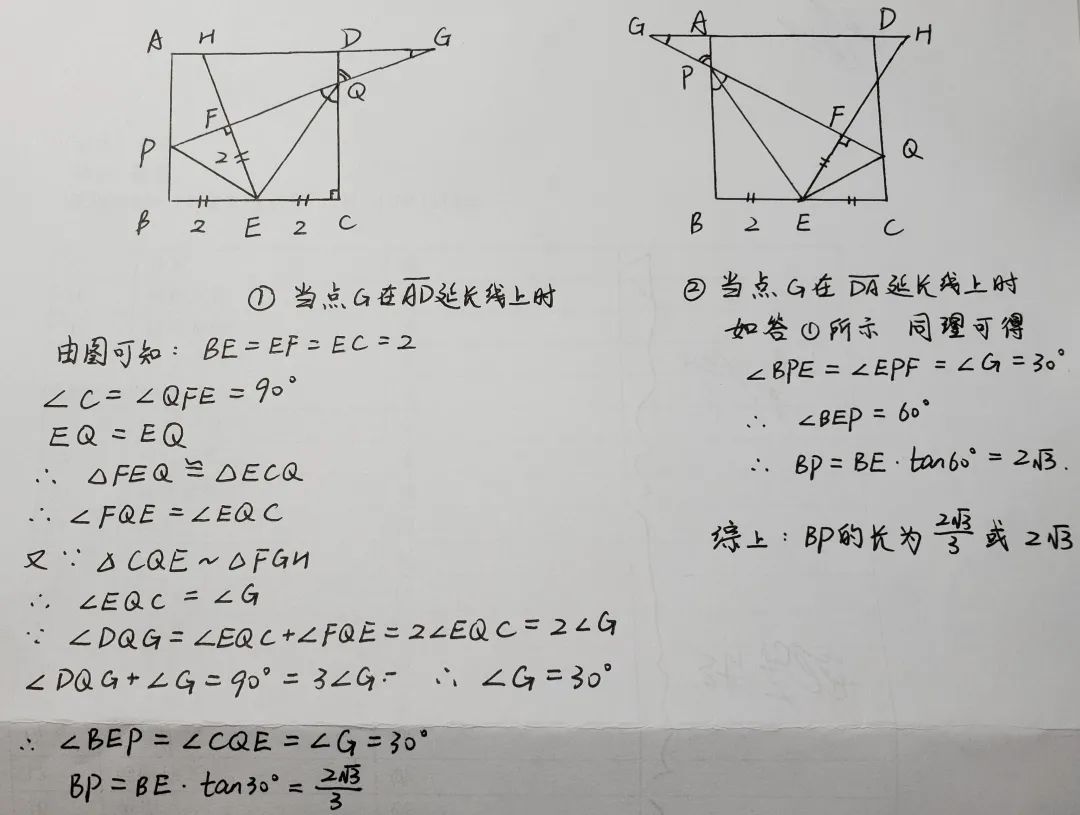 A H D G
F
Q
P
2
B 2 E 2 C
G A D H
P
F
Q
B 2 E C
① 当点G在AD延长线上时
由图可知: BE=EF=EC=2
∠C=∠QFE=90°
EQ=EQ
∴ △FEQ≌△ECQ
∴ ∠FQE=∠EQC
又∵ △CQE~△FGH
∴ ∠EQC=∠G
∵ ∠DQG=∠EQC+∠FQE=2∠EQC=2∠G
∠DQG+∠G=90°=3∠G ∴ ∠G=30°
∴ ∠BEP=∠CQE=∠G=30°
BP=BE·tan30°=2√3/3
② 当点G在DA延长线上时
如答①所示 同理可得
∠BPE=∠EPF=∠G=30°
∴ ∠BEP=60°
∴ BP=BE·tan60°=2√3.
综上: BP的长为2√3/3或2√3